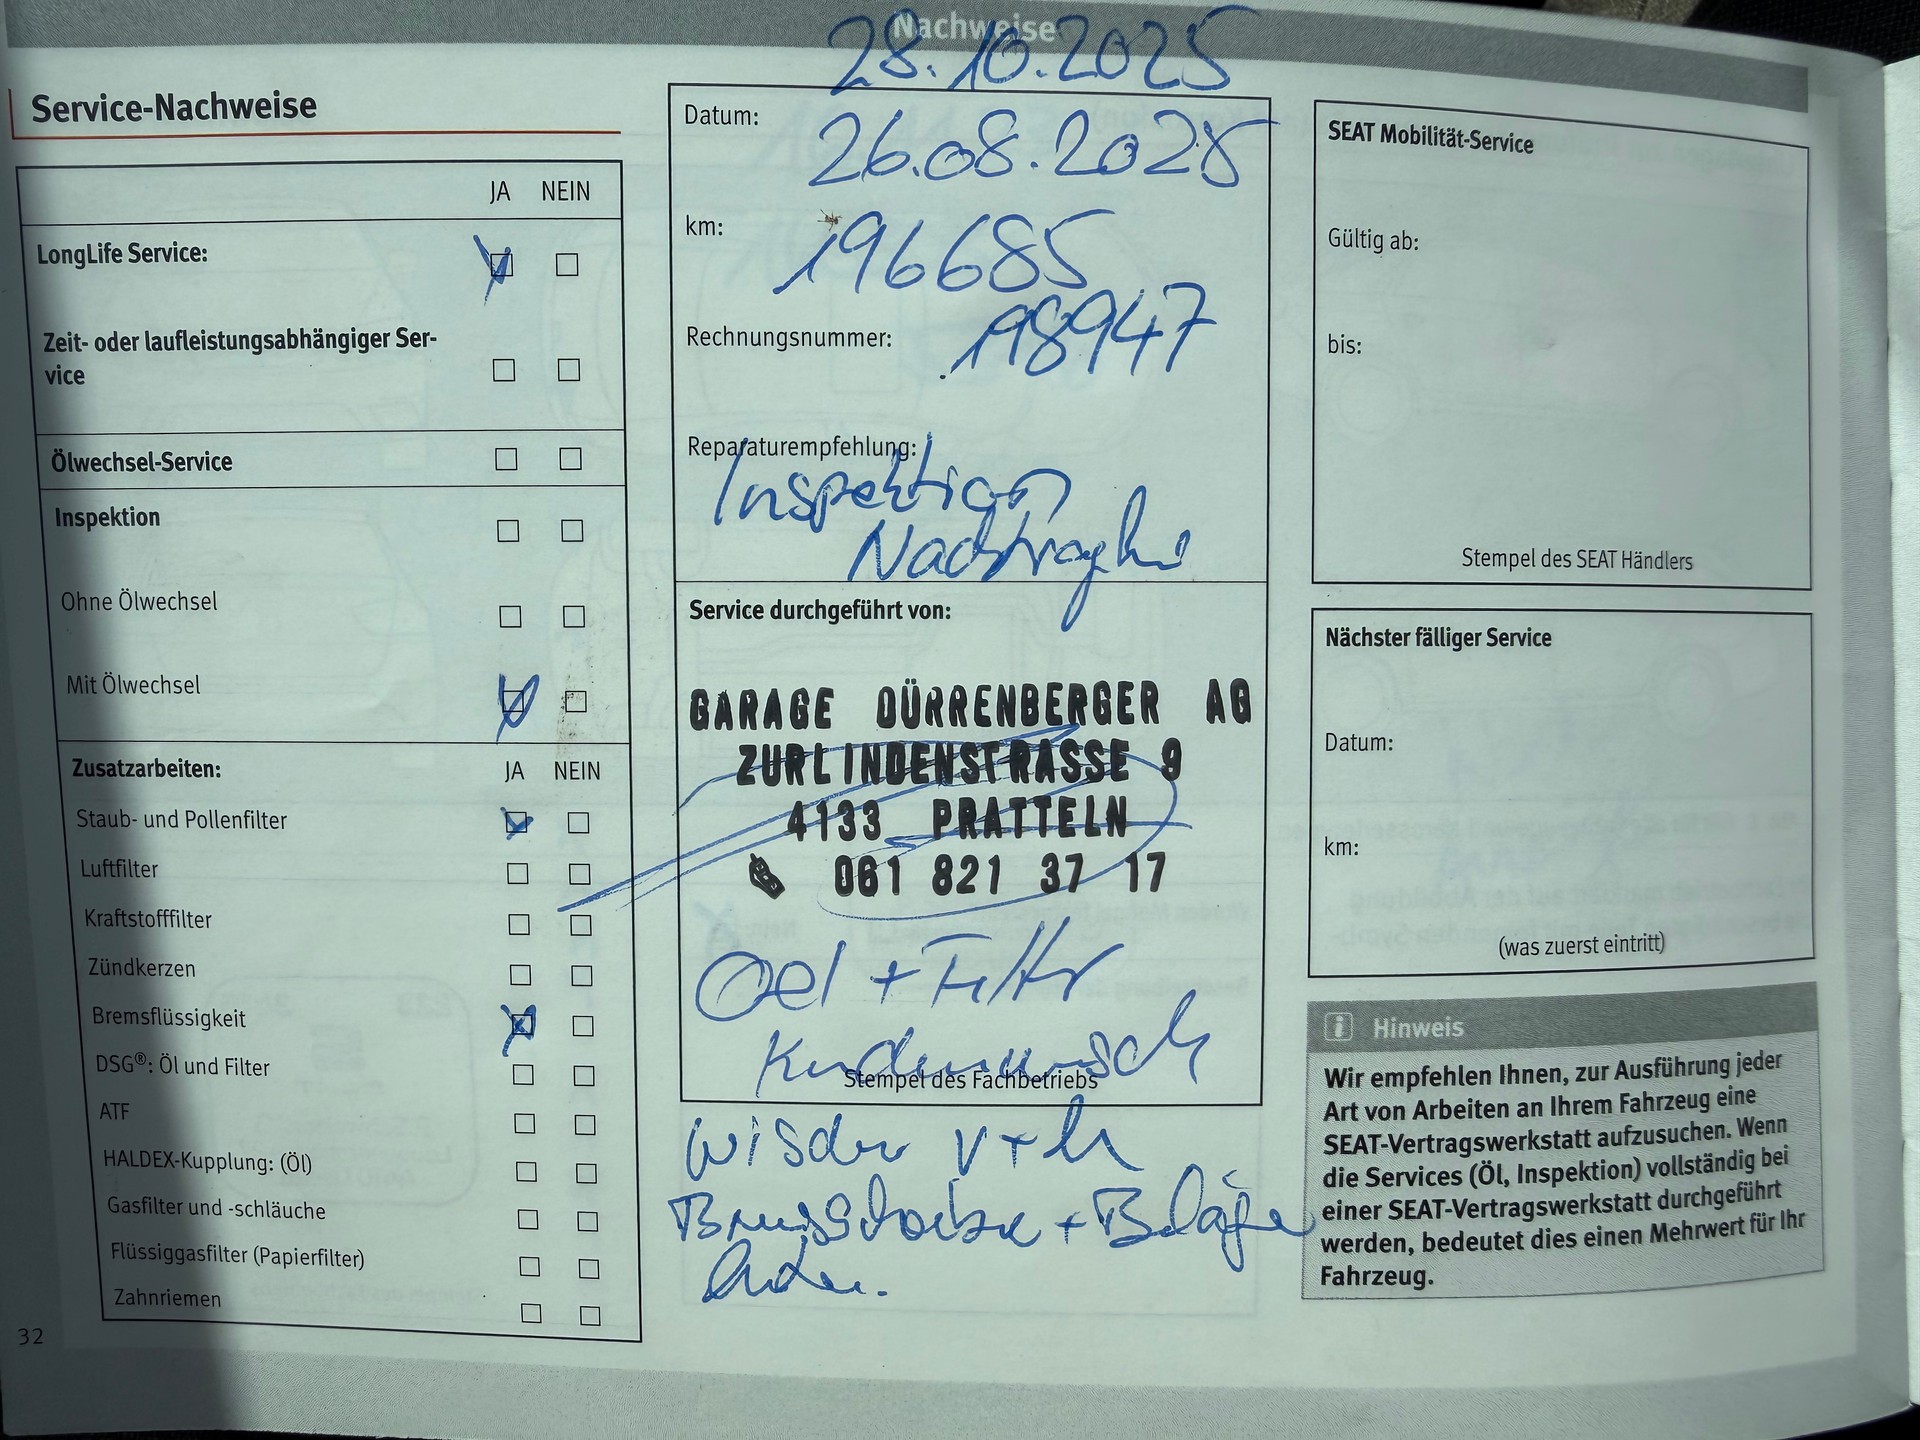 Nachweise
28.10.2025
Service-Nachweise
JA NEIN
LongLife Service:
Zeit- oder laufleistungsabhängiger Ser-
vice
Ölwechsel-Service
Inspektion
Ohne Ölwechsel
Mit Ölwechsel
Zusatzarbeiten: JA NEIN
Staub- und Pollenfilter
Luftfilter
Kraftstofffilter
Zündkerzen
Bremsflüssigkeit
DSG®: Öl und Filter
ATF
HALDEX-Kupplung: (Öl)
Gasfilter und -schläuche
Flüssiggasfilter (Papierfilter)
Zahnriemen
32
Datum: 26.08.2025
km: 196685
Rechnungsnummer: 198947
Reparaturempfehlung:
Inspektion
Service durchgeführt von:
GARAGE DÜRRENBERGER AG
ZURLINDENSTRASSE 9
4133 PRATTELN
061 821 37 17
Oel + Filter
Kundenwunsch
Stempel des Fachbetriebs
Wischer v + h
Bremsscheiben + Beläge
SEAT Mobilität-Service
Gültig ab:
bis:
Stempel des SEAT Händlers
Nächster fälliger Service
Datum:
km:
(was zuerst eintritt)
i Hinweis
Wir empfehlen Ihnen, zur Ausführung jeder
Art von Arbeiten an Ihrem Fahrzeug eine
SEAT-Vertragswerkstatt aufzusuchen. Wenn
die Services (Öl, Inspektion) vollständig bei
einer SEAT-Vertragswerkstatt durchgeführt
werden, bedeutet dies einen Mehrwert für Ihr
Fahrzeug.